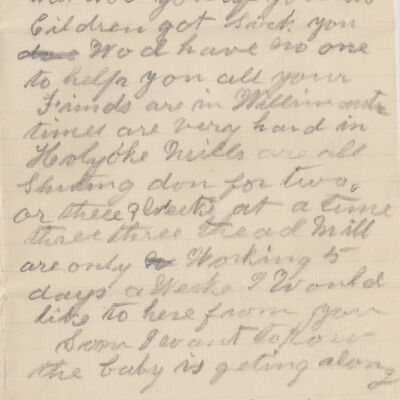 Cildren got sick you
Wod have no one
to help you all your
Frinds are in Willimantic
times are very hard in
Holyoke Mills are all
Shuting don for two
or three Weeks at a time
three three thread Mill
are only Working 5
days a Weeke I Would
like to here from you
Soon I want to know
the baby is geting along